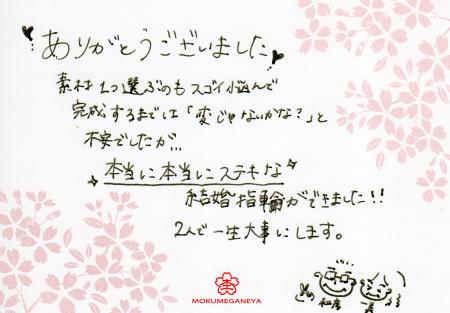 ありがとうございました
素材1つ選ぶのもスゴイ悩んで
完成するまでは「変じゃないかな？」と
不安でしたが...
本当に本当にステキな
結婚指輪ができました!!
2人で一生大事にします。
MOKUMEGANEYA